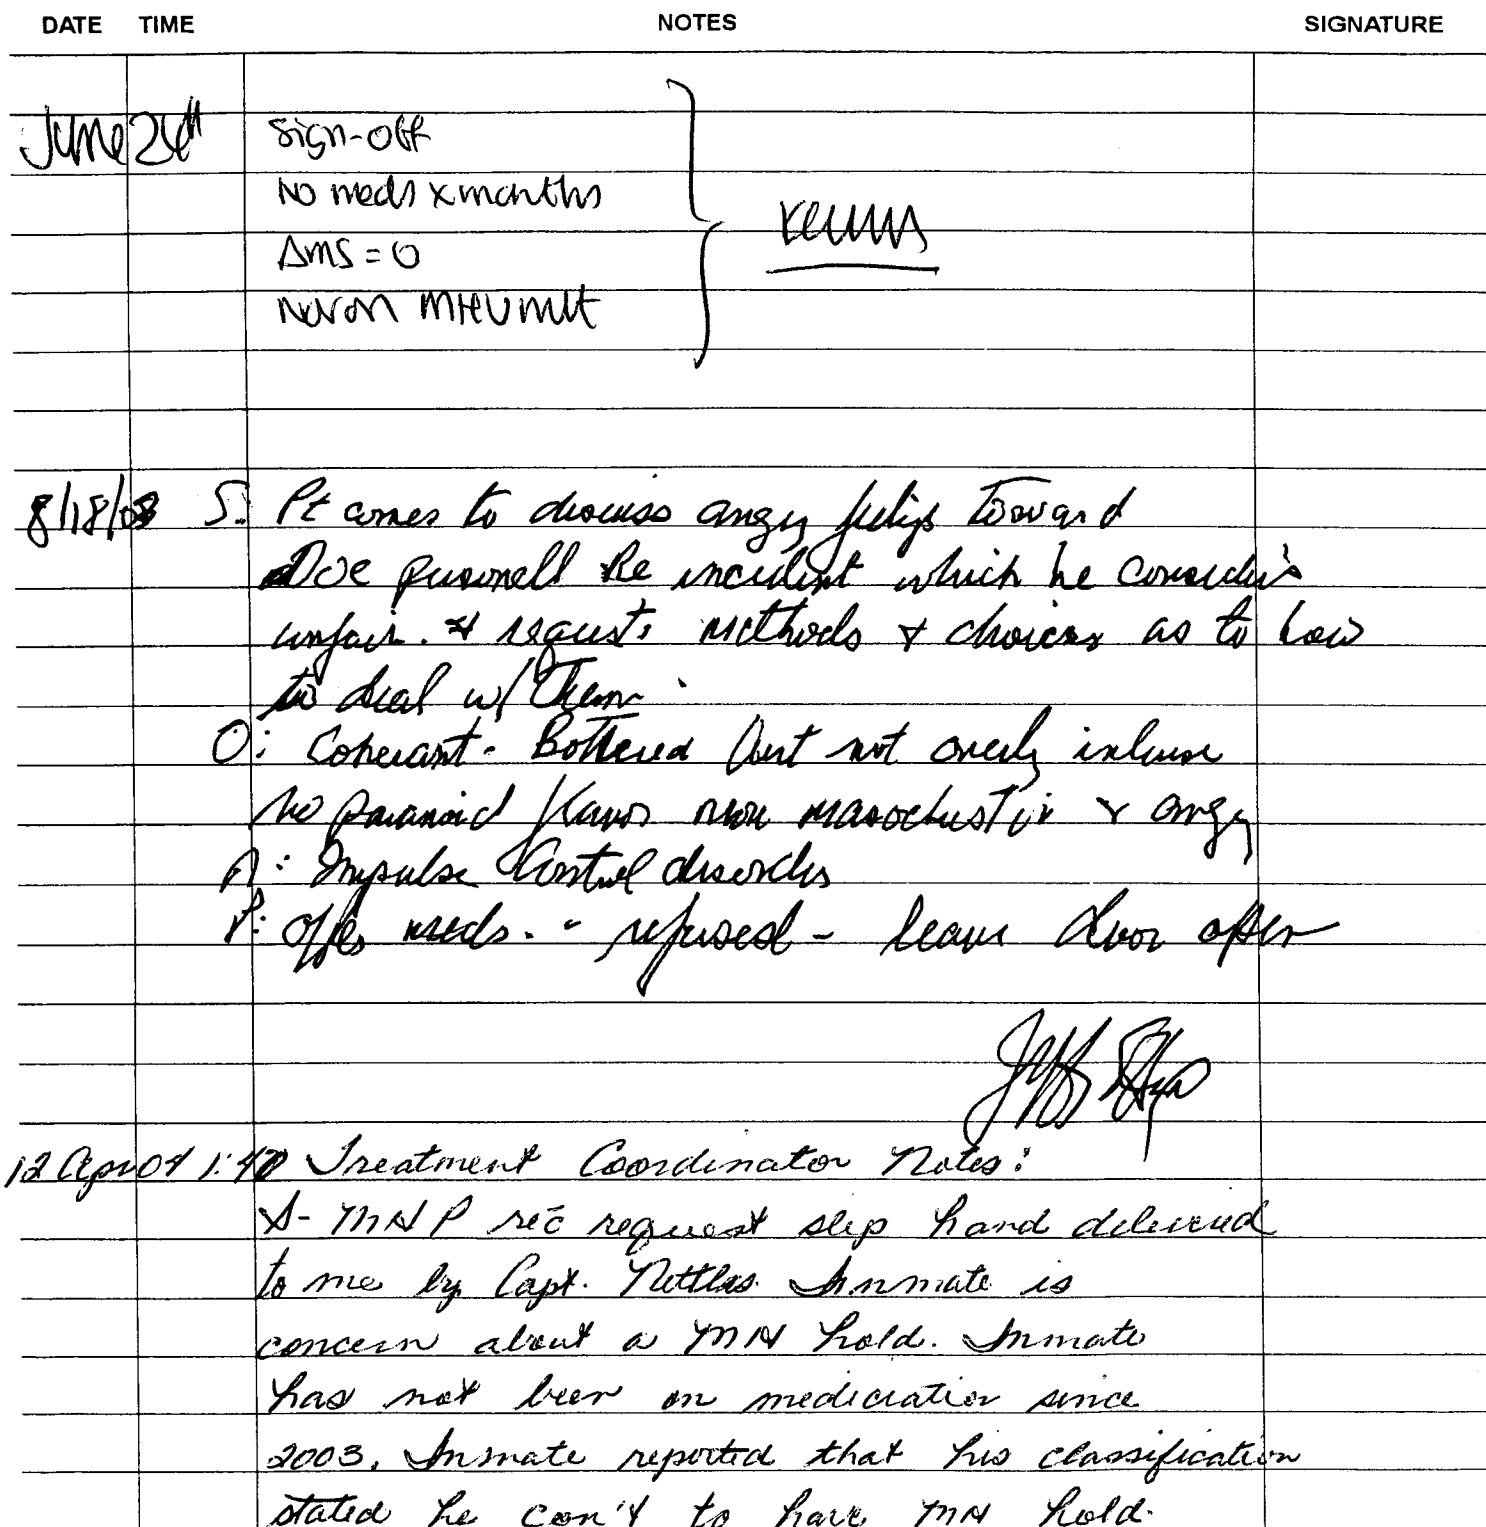 DATE TIME NOTES SIGNATURE
June 24th sign-off
No meds x months
Δms = 0
Never on MHU unit
8/18/03 S: Pt comes to discuss angry feelings toward
DOC personell Re incident which he considers
unfair. & requests methods & choices as to how
to deal w/ them.
O: Coherant - Bothered but not overly intense
No paranoid flavor more masochistic & angry
A: Impulse Control disorder
P: offer meds. - refused - leave door open
12 Apr 04 1:40 Treatment Coordinator Notes:
S- MHP rec request slip hand delivered
to me by Capt. Nettles. Inmate is
concern about a MH hold. Inmate
has not been on medication since
2003. Inmate reported that his classification
stated he can't to have MH hold.